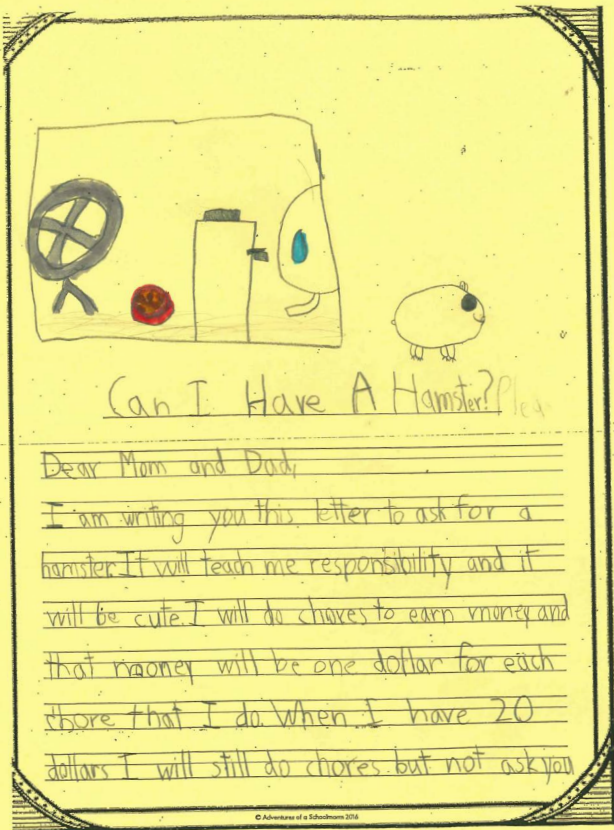 Can I Have A Hamster?
Dear Mom and Dad,
I am writing you this letter to ask for a
hamster. It will teach me responsibility and it
will be cute. I will do chores to earn money and
that mooney will be one dollar for each
chore that I do. When I have 20
dollars I will still do chores but not ask you
© Adventures of a Schoolmom 2016